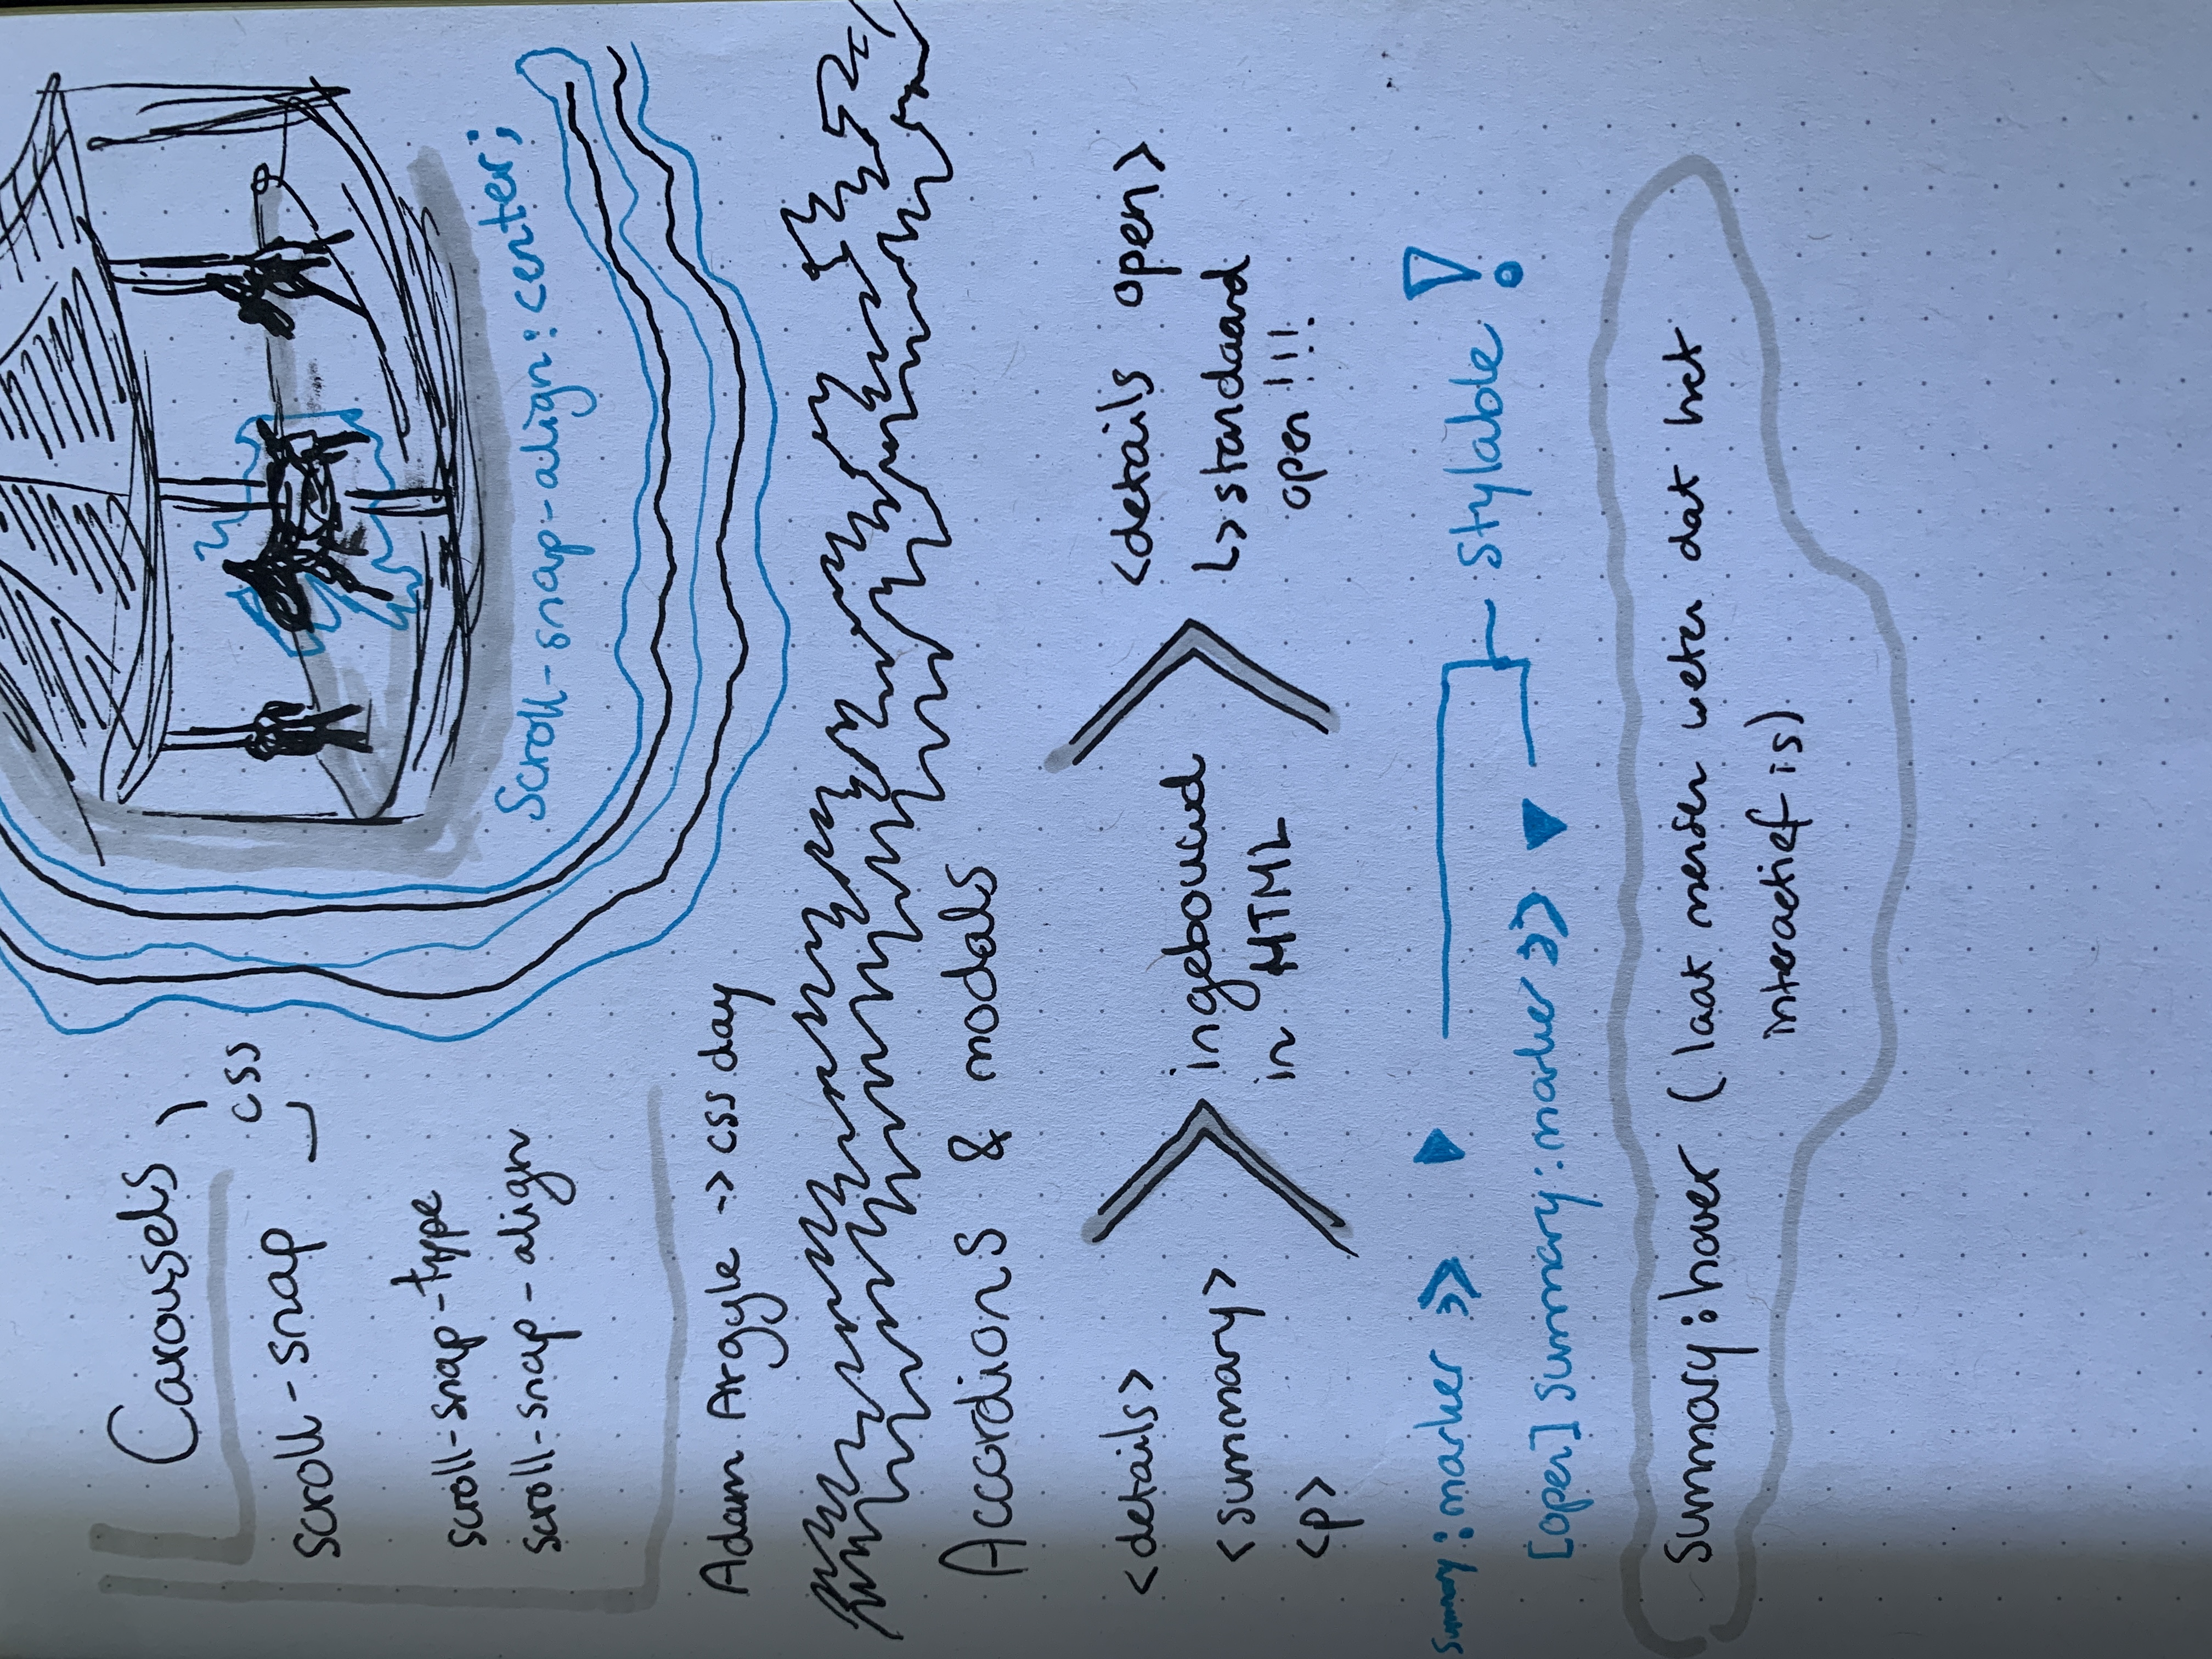 Carousels
css
scroll-snap
scroll-snap-type
scroll-snap-align
Scroll-snap-align: center;
Adam Argyle -> css day
Accordions & modals
<details>
<summary>
<p>
ingebouwd
in HTML
<details open>
↳ standaard
open!!!
summary:marker >>
[open] summary:marker >>
stylable !
summary:hover (laat mensen weten dat het
interactief is)